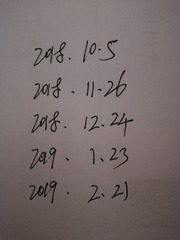 2018. 10.5
2018. 11.26
2018. 12.24
2019. 1.23
2019. 2.21